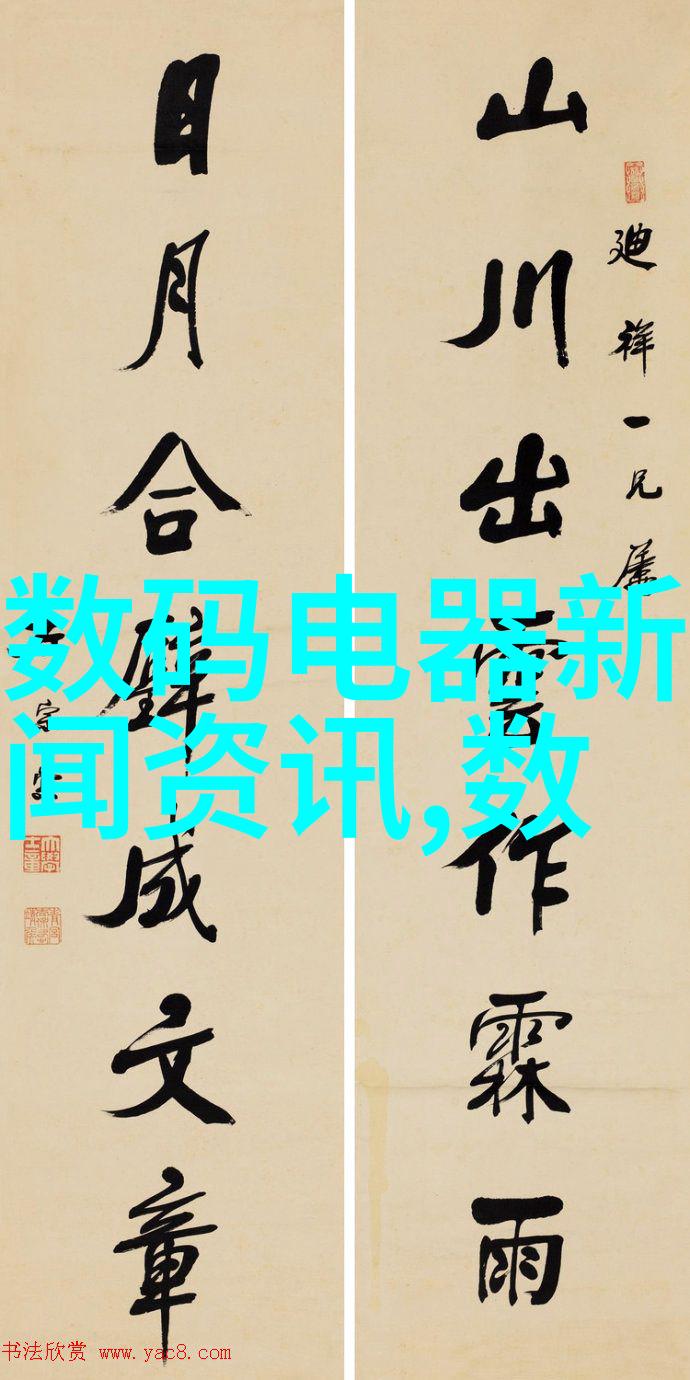 山川出雲作霖雨
廸祥一兄屬
日月合璧成文章
守
数码电器新
闻资讯,数
书法欣赏 www.yac8.com